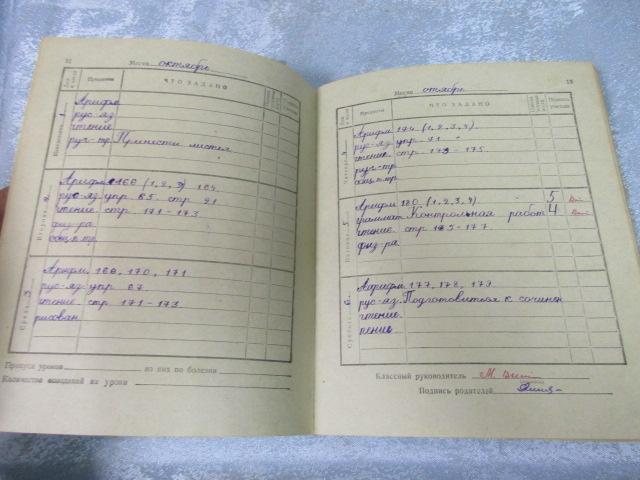 12
Месяц октябрь
Предметы ЧТО ЗАДАНО
Понедельник 1
Арифм
рус-яз
чтение
руч-тр. Принести листья
Вторник 2
Арифм 166 (1,2,3) 164
рус-яз. упр 65. стр 21
чтение. стр 171-173
физ-ра
общ. тр
Среда 3
Арифм. 169, 170, 171
рус-яз. упр 67
чтение стр 171-173
рисован
Пропуск уроков из них по болезни
Количество опозданий на уроки
13
Месяц октябрь
Предметы ЧТО ЗАДАНО Подпись учителя
Четверг 4
Арифм 174 (1,2,3,4).
рус-яз упр 71
чтение. стр 173-175
руч-тр
общ. тр
Пятница 5
Арифм 180 (1,2,3,4) 5
граммат. Контрольная работ 4
чтение. стр 175-177
физ-ра
Суббота 6
Арифм. 177, 178, 179
рус-яз. Подготовиться к сочинен
чтение.
пение.
Классный руководитель
Подпись родителей